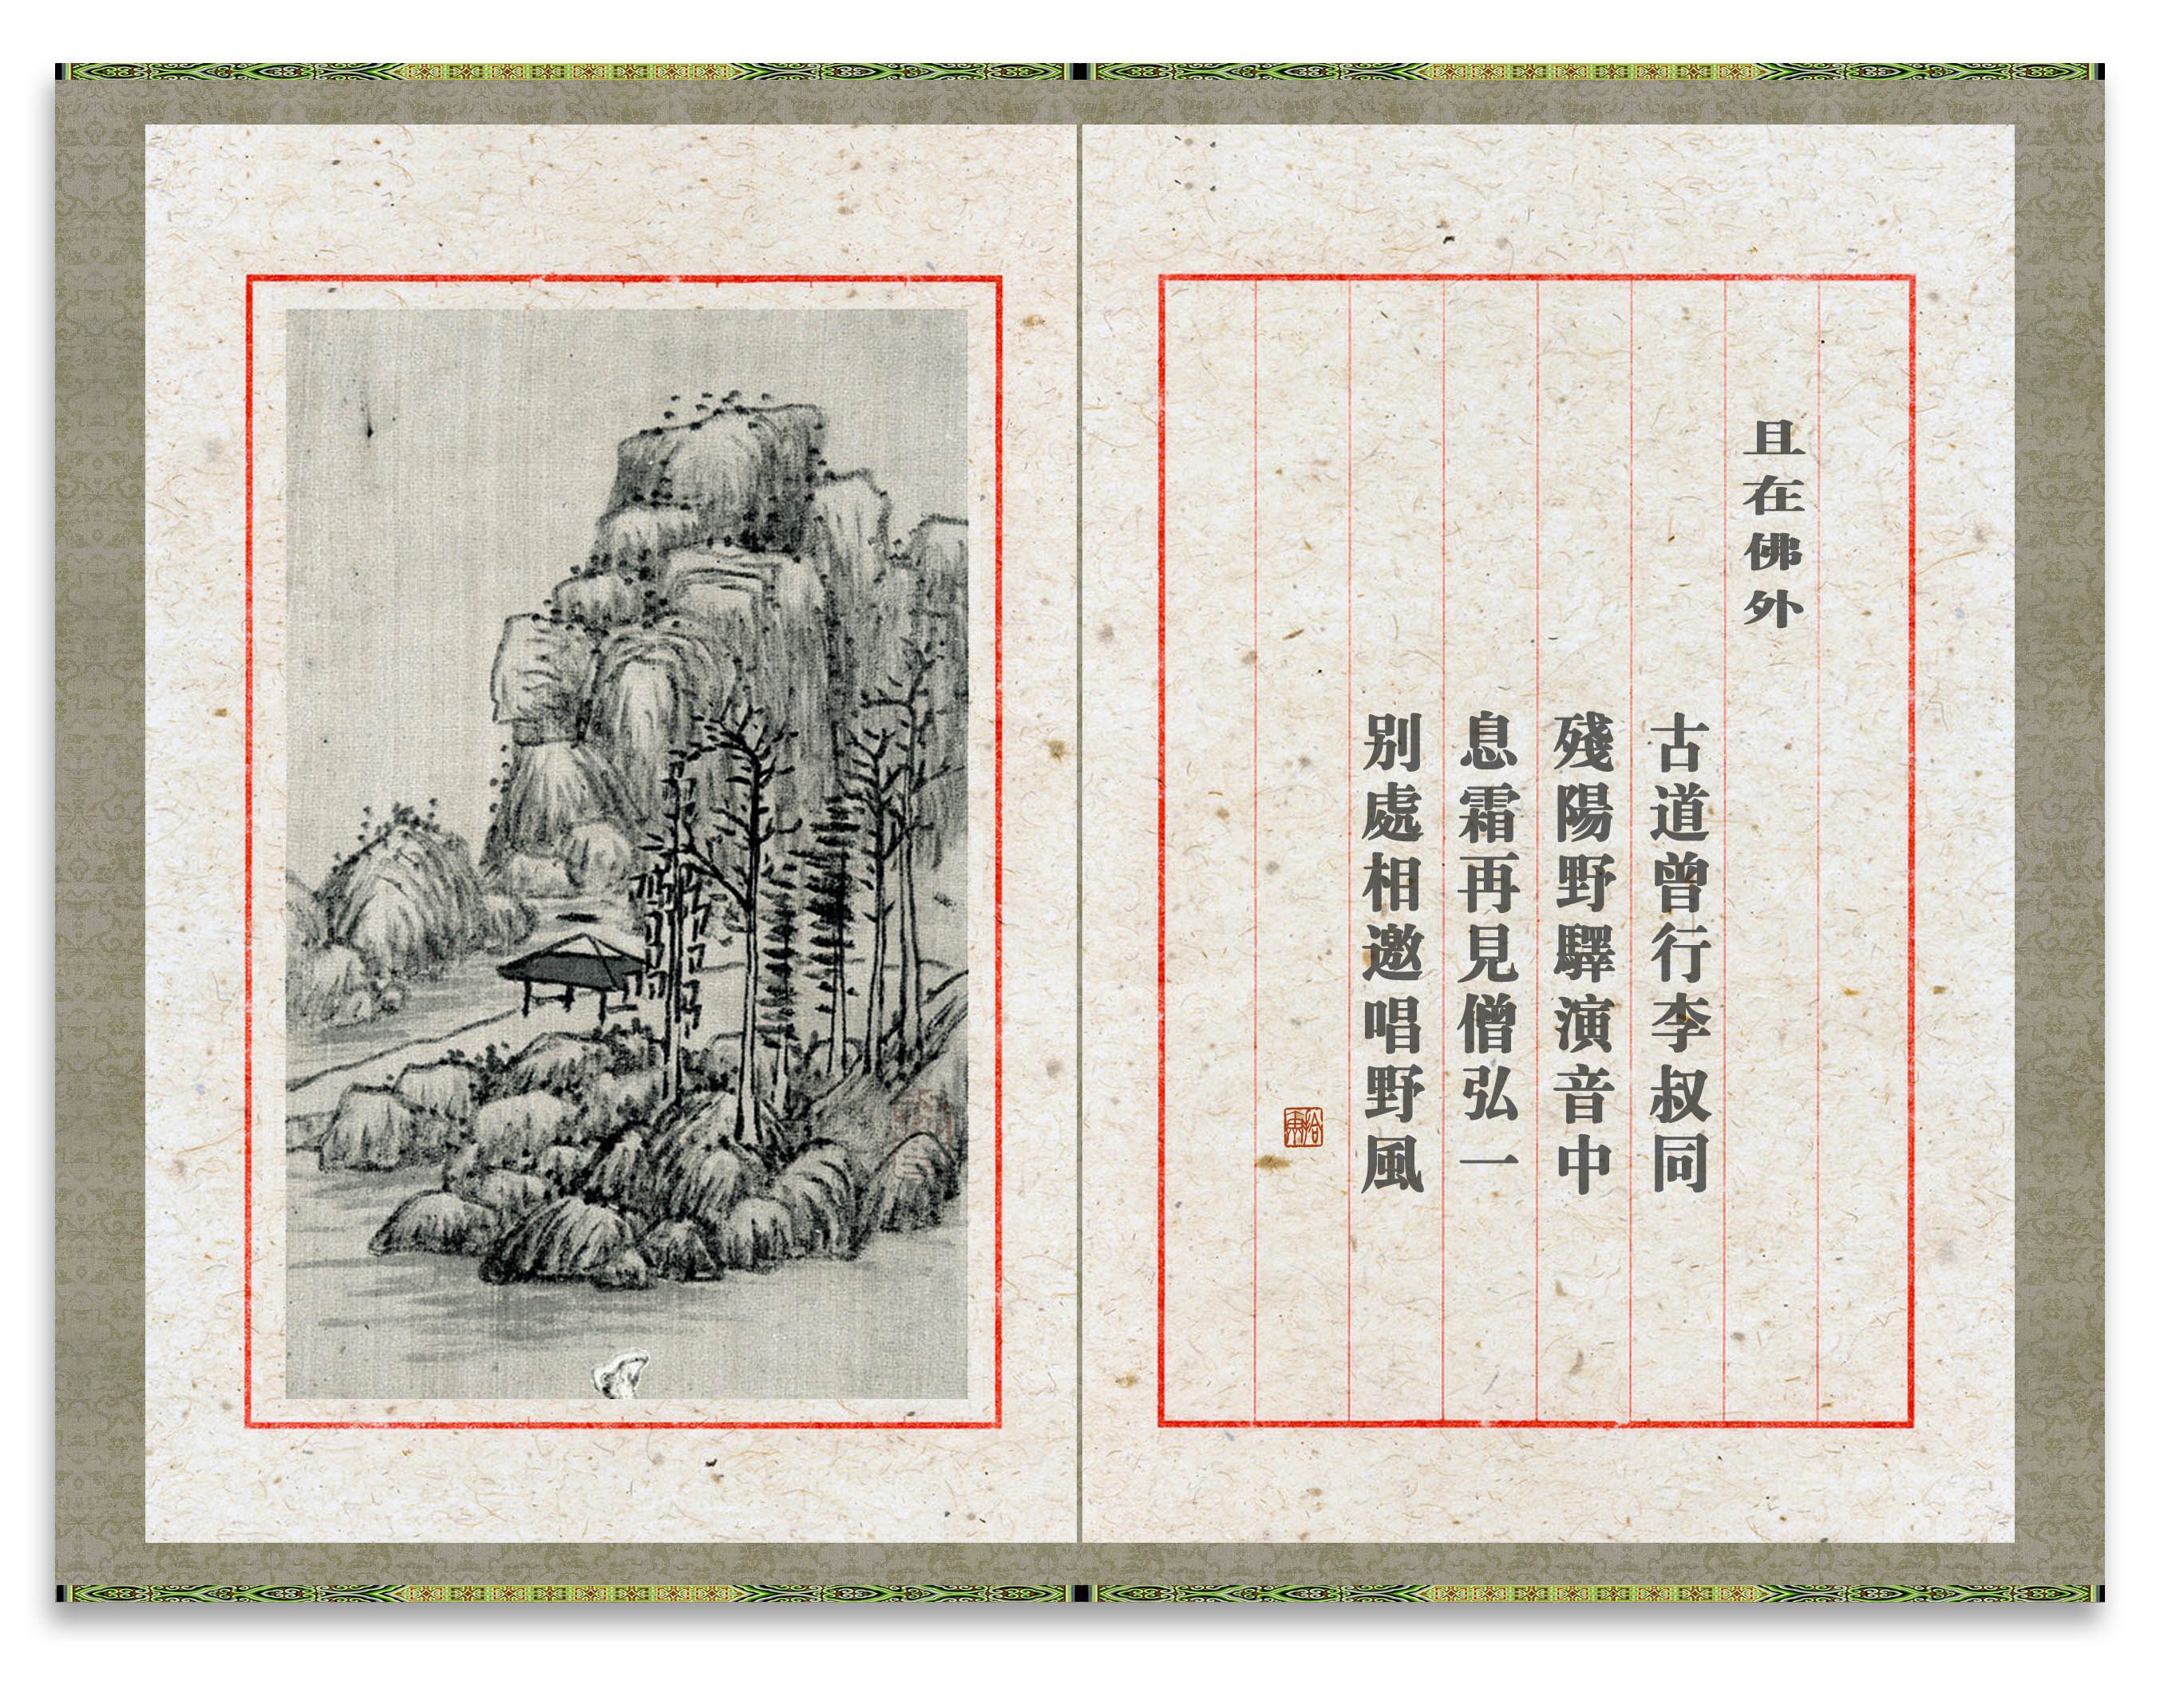 且在佛外
古道曾行李叔同
殘陽野驛演音中
息霜再見僧弘一
別處相邀唱野風